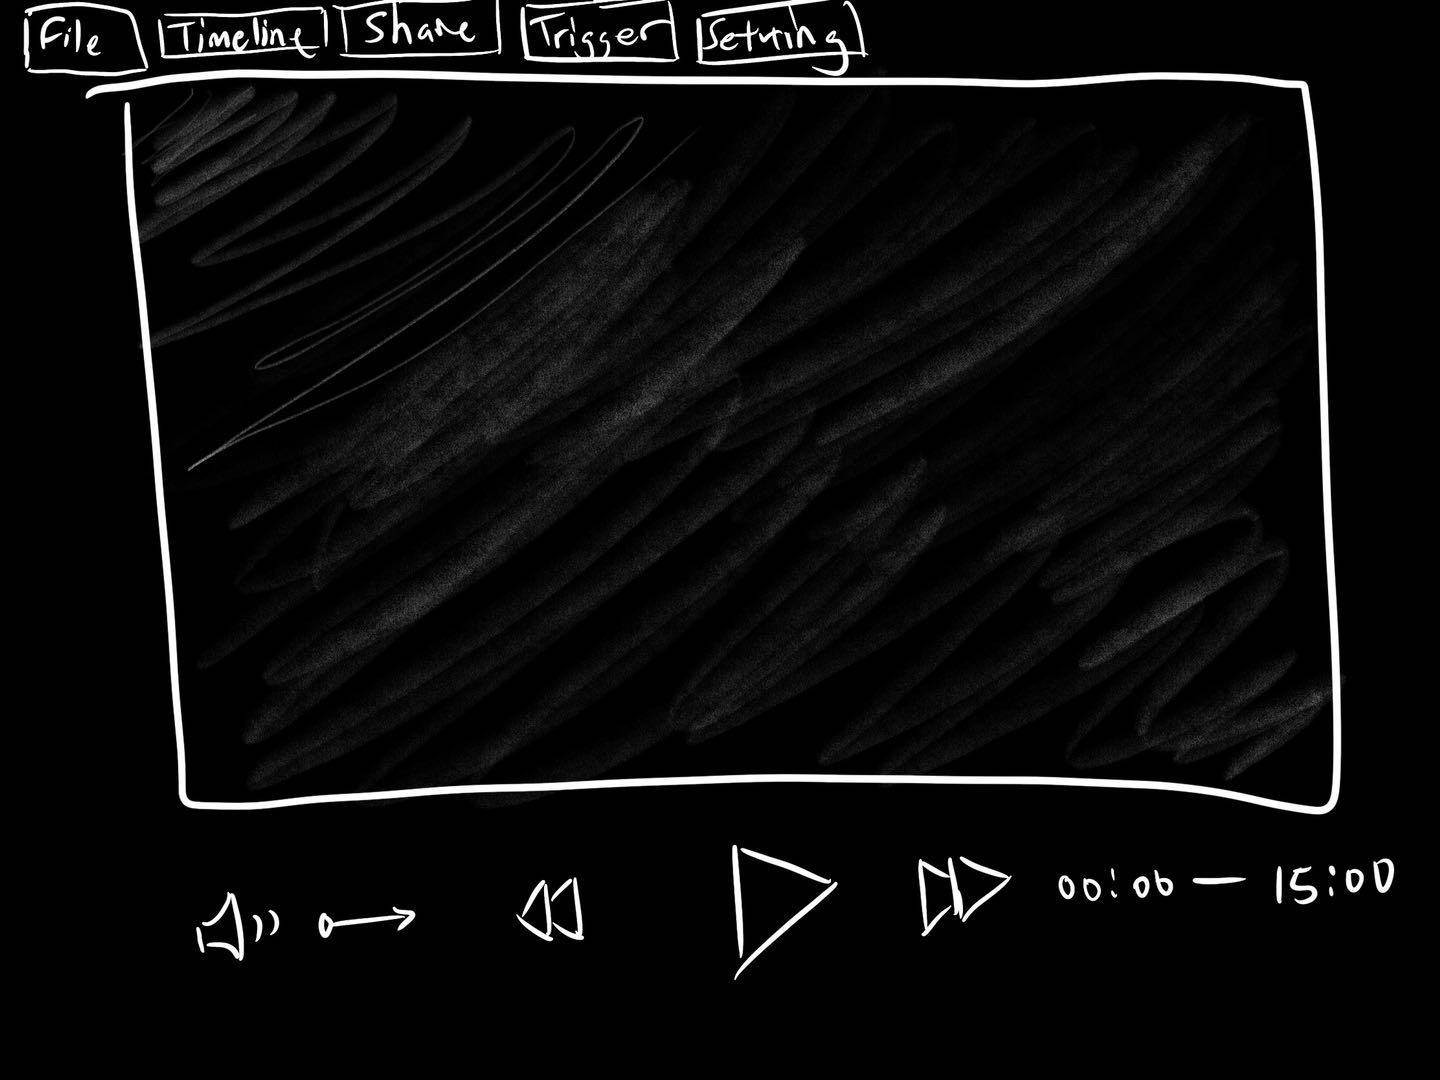 File Timeline Share Trigger Setting
00:00 — 15:00